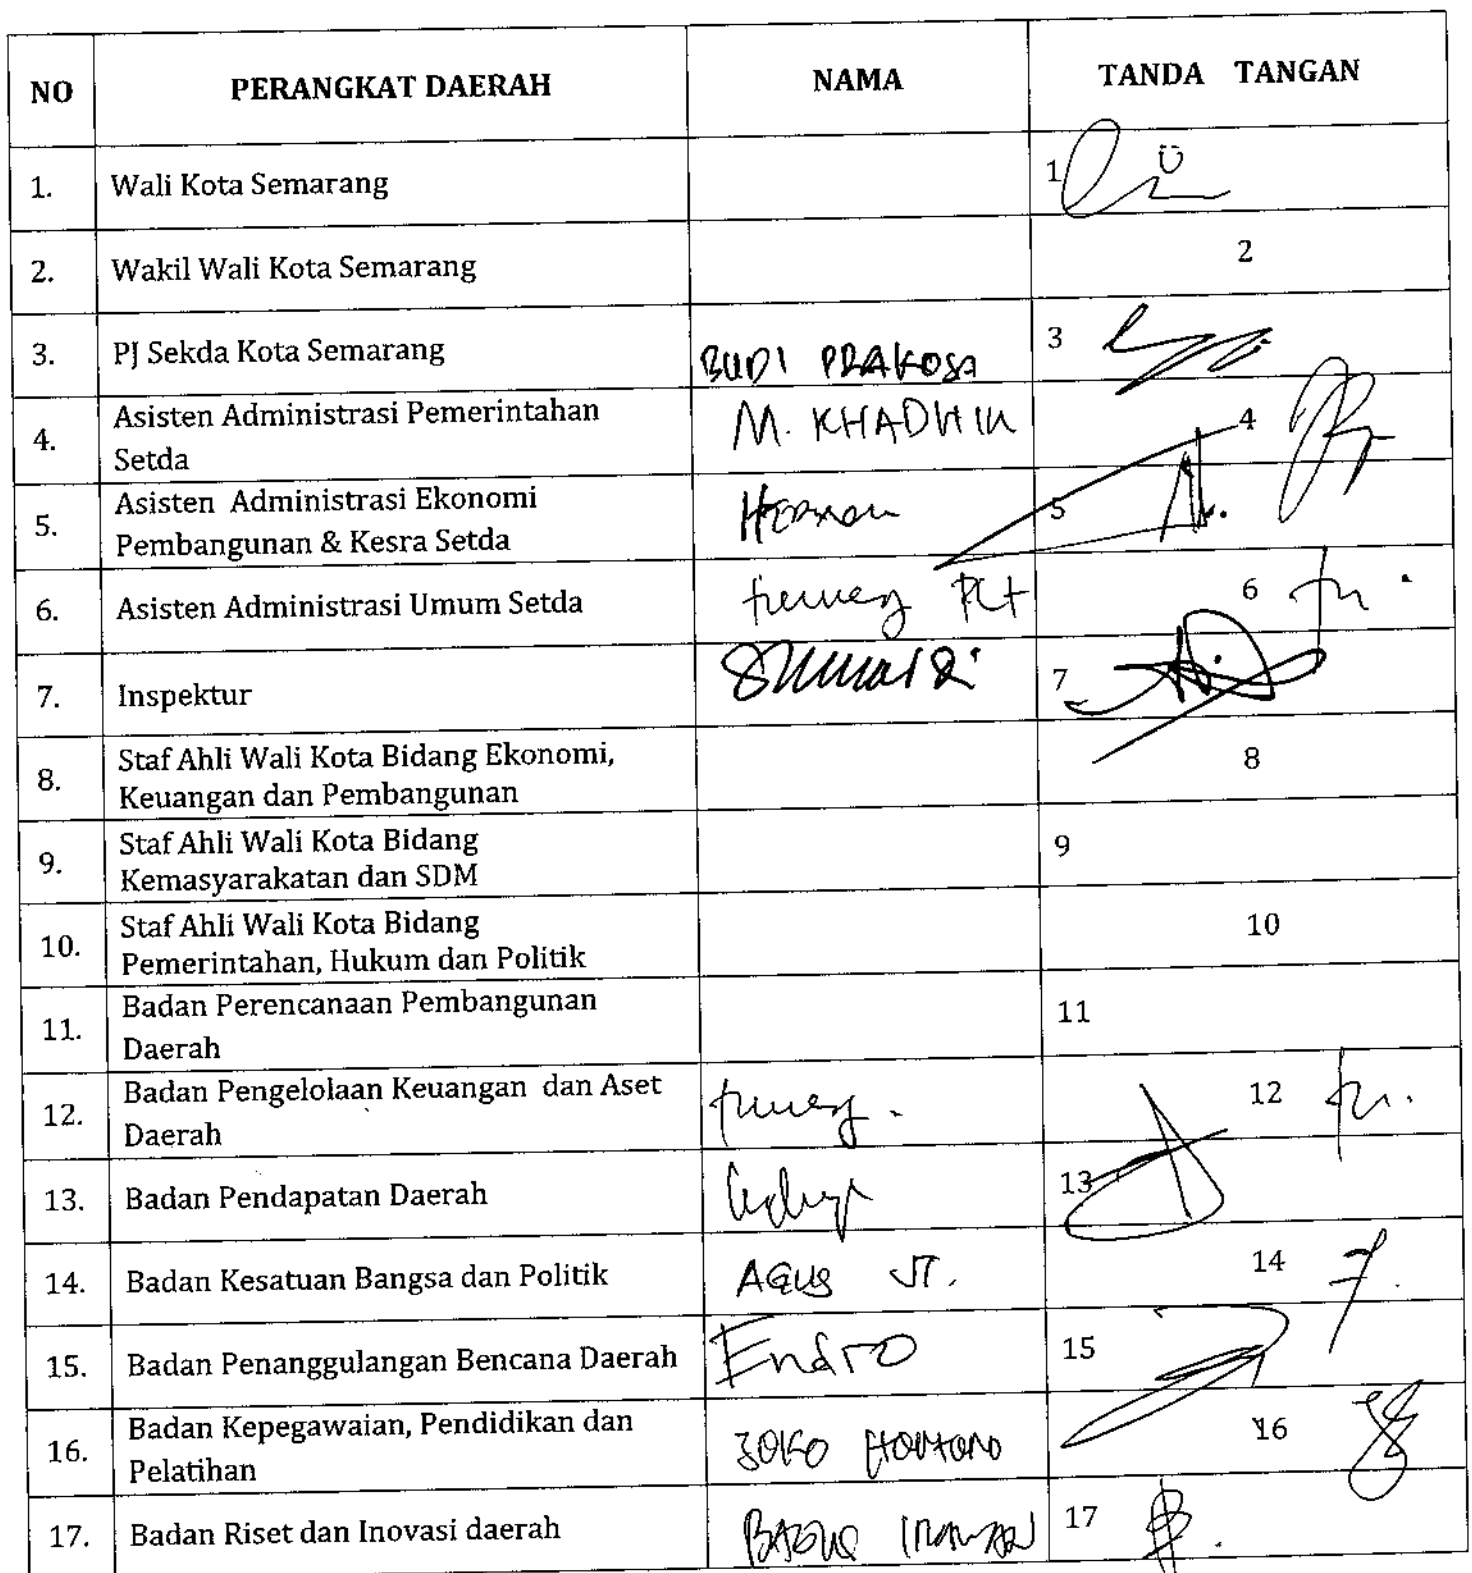 NO PERANGKAT DAERAH NAMA TANDA TANGAN
1. Wali Kota Semarang 1
2. Wakil Wali Kota Semarang 2
3. PJ Sekda Kota Semarang BUDI PRAKOSA 3
4. Asisten Administrasi Pemerintahan
Setda M. KHADHIK 4
5. Asisten Administrasi Ekonomi
Pembangunan & Kesra Setda Hernan 5
6. Asisten Administrasi Umum Setda Plt 6
7. Inspektur 7
8. Staf Ahli Wali Kota Bidang Ekonomi,
Keuangan dan Pembangunan 8
9. Staf Ahli Wali Kota Bidang
Kemasyarakatan dan SDM 9
10. Staf Ahli Wali Kota Bidang
Pemerintahan, Hukum dan Politik 10
11. Badan Perencanaan Pembangunan
Daerah 11
12. Badan Pengelolaan Keuangan dan Aset
Daerah 12
13. Badan Pendapatan Daerah 13
14. Badan Kesatuan Bangsa dan Politik AGUS 14
15. Badan Penanggulangan Bencana Daerah Endro 15
16. Badan Kepegawaian, Pendidikan dan
Pelatihan JOKO HARTONO 16
17. Badan Riset dan Inovasi daerah BAGUS IRAWAN 17